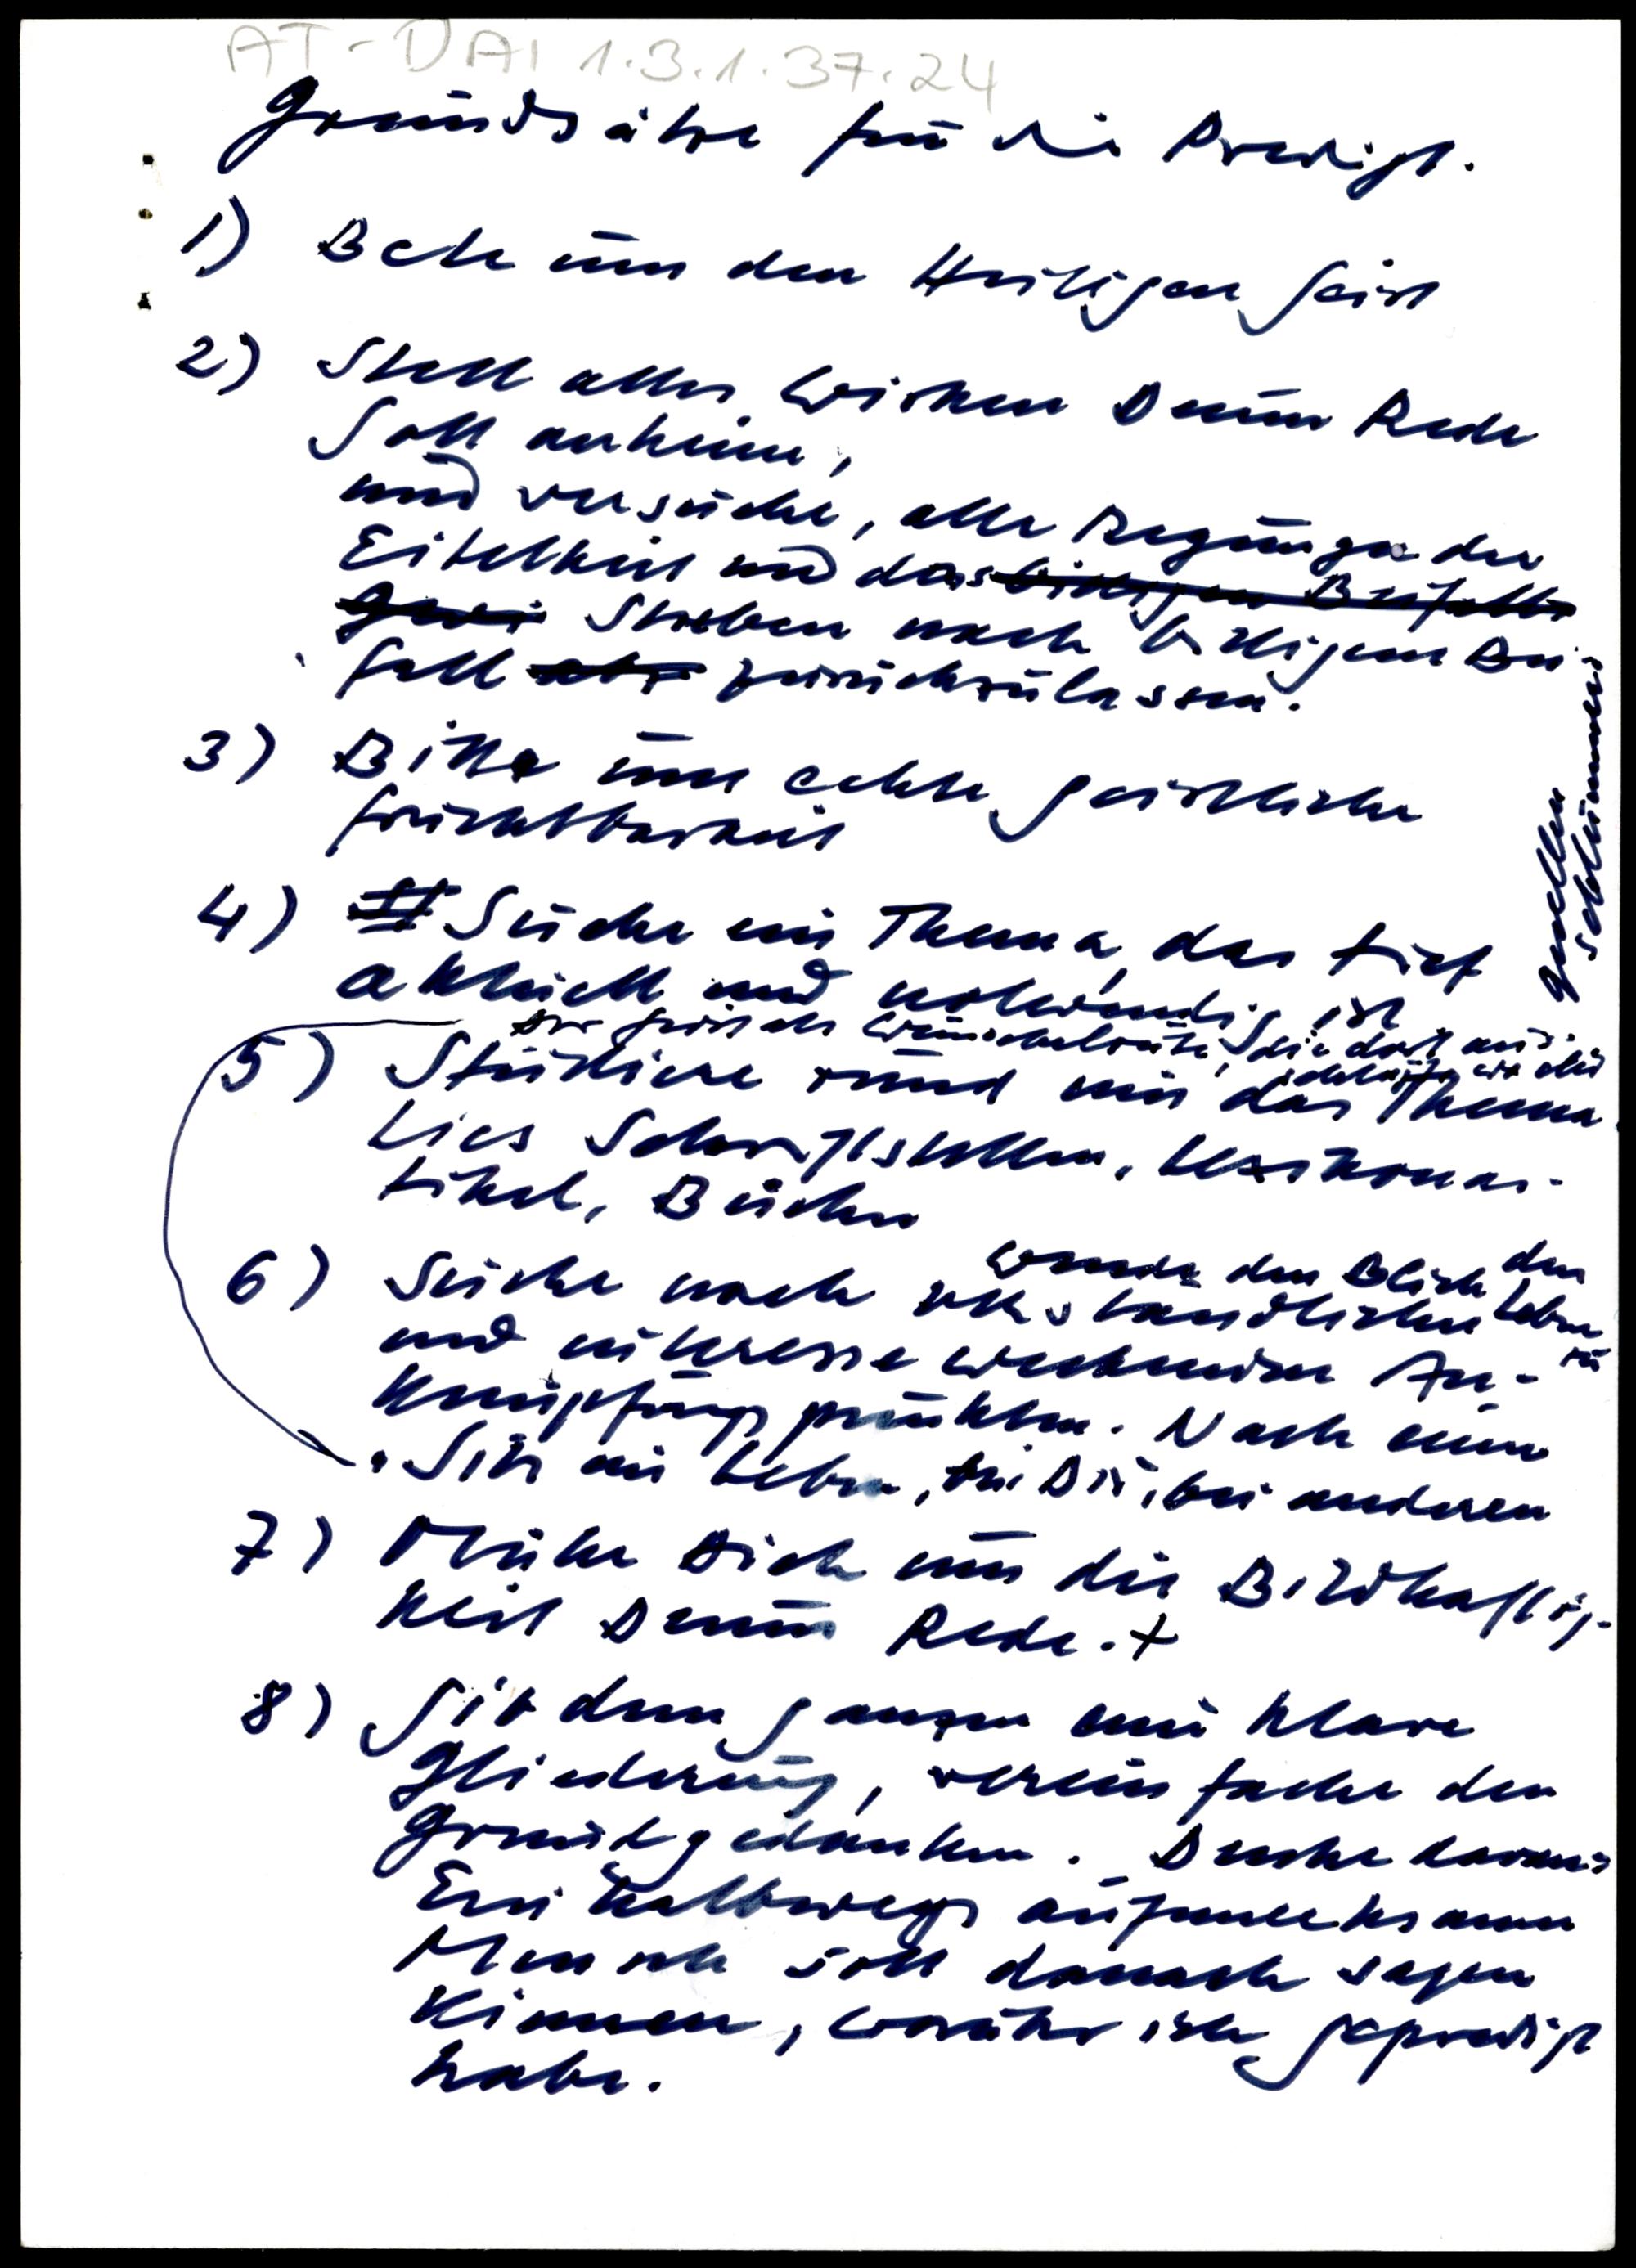 AT-DAI 1.3.1.37.24
Grundsätze für die Predigt.
1) Bete um den Heiligen Geist
2) Stell alles Wirken Deiner Rede
Gott anheim,
und versuche, alle Regungen der
Eitelkeit und das billigen Beifalls
Streben nach billigem Bei-
fall zurückzulassen.
3) Bitte um echte geistliche
Fruchtbarkeit
4) Suche ein Thema, das tief
aktuell und notwendig ist
der geistl. Wünschelrute, die dort aus-
schlägt, wo die
Quellen
schlummern
5) Studiere rund um das Thema
Lies Schriftstellen, Lexikonar-
tikel, Bücher
6) Suche nach verständlichen
wende den Blick dem
Leben zu
und interesseweckenden An-
knüpfungspunkten. Nach einem
Sitz im Leben, bei Dir, bei anderen
7) Mühe Dich um die Bildhaftig-
keit Deiner Rede. +
8) Gib dem ganzen eine klare
Gliederung, vereinfache den
Grundgedanken. Denke daran:
Ein halbwegs aufmerksamer
Mensch soll danach sagen
können, worüber ich gepredigt
habe.